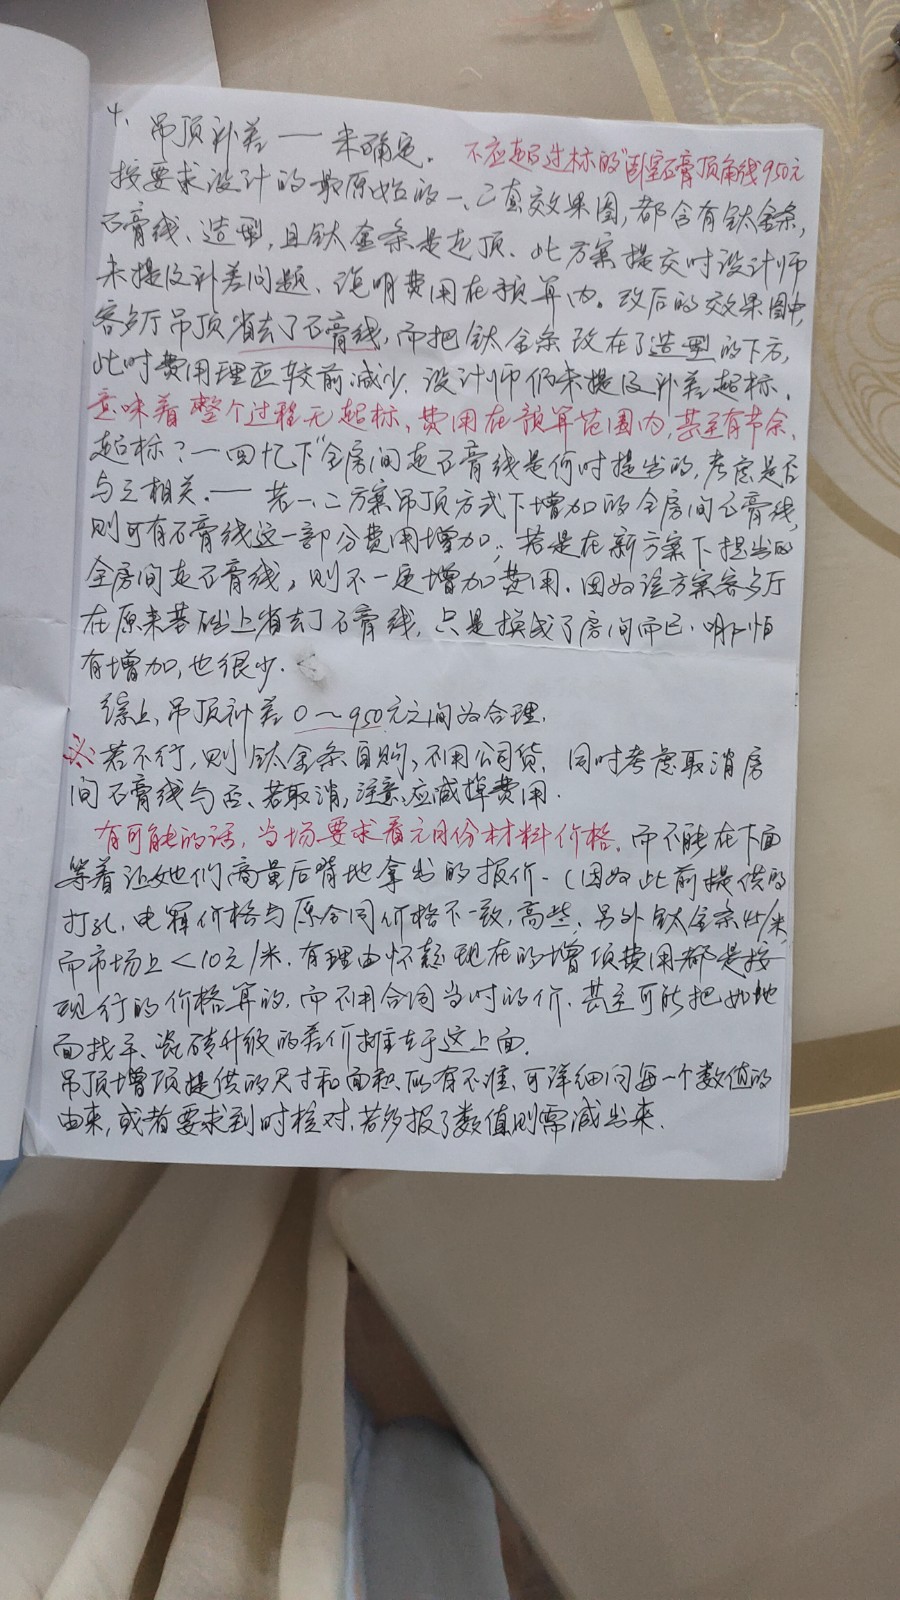 4、吊顶补差——未确定. 不应超过标的"卧室石膏顶角线950元
按要求设计的最原始的一、二套效果图,都含有钛金条,
石膏线、造型,且钛金条是走顶、此方案提交时设计师
未提及补差问题、说明费用在预算内。改后的效果图中,
客餐厅吊顶省去了石膏线,而把钛金条改在了造型的下方,
此时费用理应较前减少.设计师仍未提及补差超标.
意味着整个过程无超标、费用在预算范围内,甚至有节余、
超标?一回忆下"全房间走石膏线是何时提出的,考虑是否
与之相关.——若一、二方案吊顶方式下增加的全房间石膏线,
则可有石膏线这一部分费用增加;若是在新方案下提出的
全房间走石膏线,则不一定增加费用.因为该方案客餐厅
在原来基础上省去了石膏线,只是换成了房间而已.哪怕
有增加,也很少.
综上、吊顶补差0~950元之间为合理.
※若不行,则钛金条自购,不用公司货.同时考虑取消房
间石膏线与否、若取消,注意、应减掉费用.
有可能的话,当场要求看元月份材料价格.而不能在下面
等着让她们商量后背地拿出的报价.(因为此前提供的
打孔、电箱价格与原合同价格不一致,高些、另外钛金条 /米,
而市场上<10元/米.有理由怀疑现在的增项费用都是按
现行的价格算的.而不用合同当时的价.甚至可能把如地
面找平、瓷砖升级的差价摊在于这上面.
吊顶增项提供的尺寸和面积,似有不准、可详细问每一个数值的
由来,或者要求到时核对,若多报了数值则需减出来.